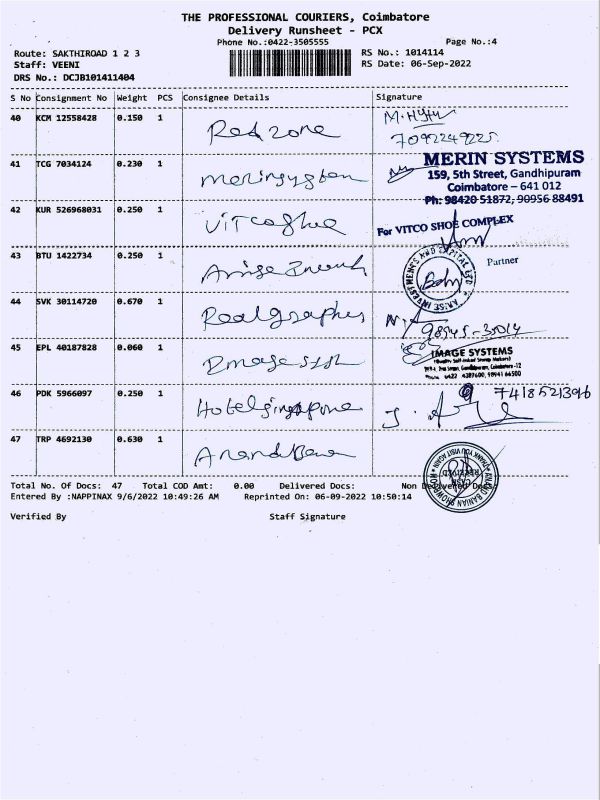 THE PROFESSIONAL COURIERS, Coimbatore
Delivery Runsheet - PCX
Phone No.:0422-3505555
Page No.:4
Route: SAKTHIROAD 1 2 3
RS No.: 1014114
Staff: VEENI
RS Date: 06-Sep-2022
DRS No.: DCJB101411404
S No Consignment No Weight PCS Consignee Details Signature
40 KCM 12558428 0.150 1 Redzone
7092249225
41 TCG 7034124 0.230 1 meringystem
MERIN SYSTEMS
159, 5th Street, Gandhipuram
Coimbatore – 641 012
Ph: 98420 51872, 90956 88491
42 KUR 526968031 0.250 1
For VITCO SHOE COMPLEX
Partner
43 BTU 1422734 0.250 1
44 SVK 30114720 0.670 1 Realgraphics
98945-35014
45 EPL 40187828 0.060 1
IMAGE SYSTEMS
46 PDK 5966097 0.250 1 Hotelsingapore
7418521396
47 TRP 4692130 0.630 1
Total No. Of Docs: 47 Total COD Amt: 0.00 Delivered Docs: Non Delivered Docs:
Entered By :NAPPINAX 9/6/2022 10:49:26 AM Reprinted On: 06-09-2022 10:50:14
Verified By Staff Signature